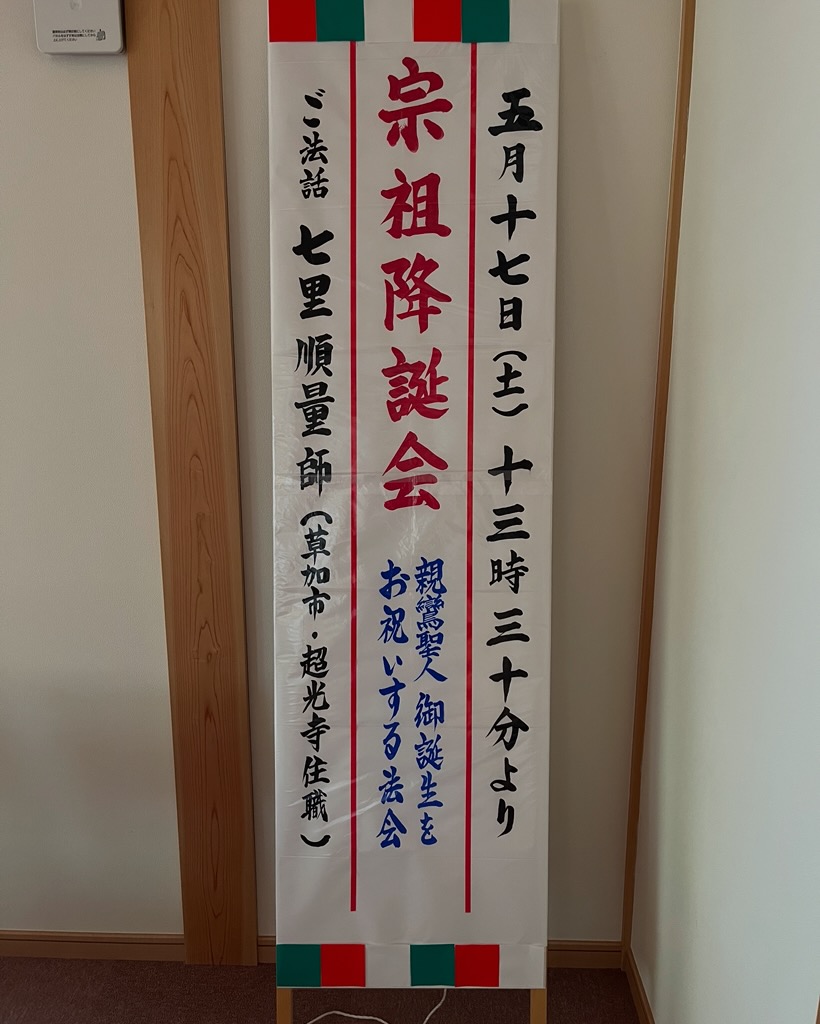 五月十七日（土）十三時三十分より
宗祖降誕会
親鸞聖人 御誕生を
お祝いする法会
ご法話 七里順量師（草加市・超光寺住職）